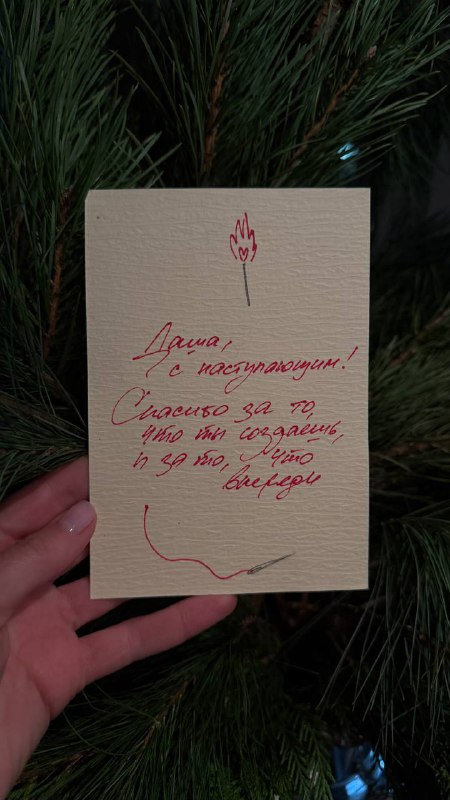 Даша,
с наступающим!
Спасибо за то,
что ты создаёшь,
и за то, что
впереди